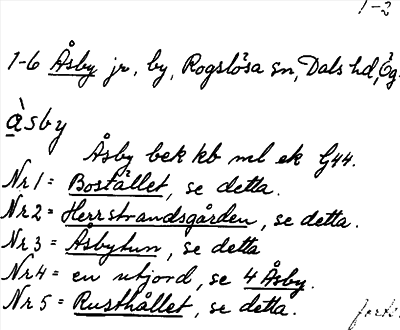 1-2
1-6 Åsby jr, by, Rogslösa sn, Dals hd, Ög.
àsby
Åsby bek kb ml ek G44.
Nr 1 = Bostället, se detta.
Nr 2 = Herrstrandsgården, se detta.
Nr 3 = Åsbytun, se detta
Nr 4 = en utjord, se 4 Åsby.
Nr 5 = Rusthållet, se detta.
forts.